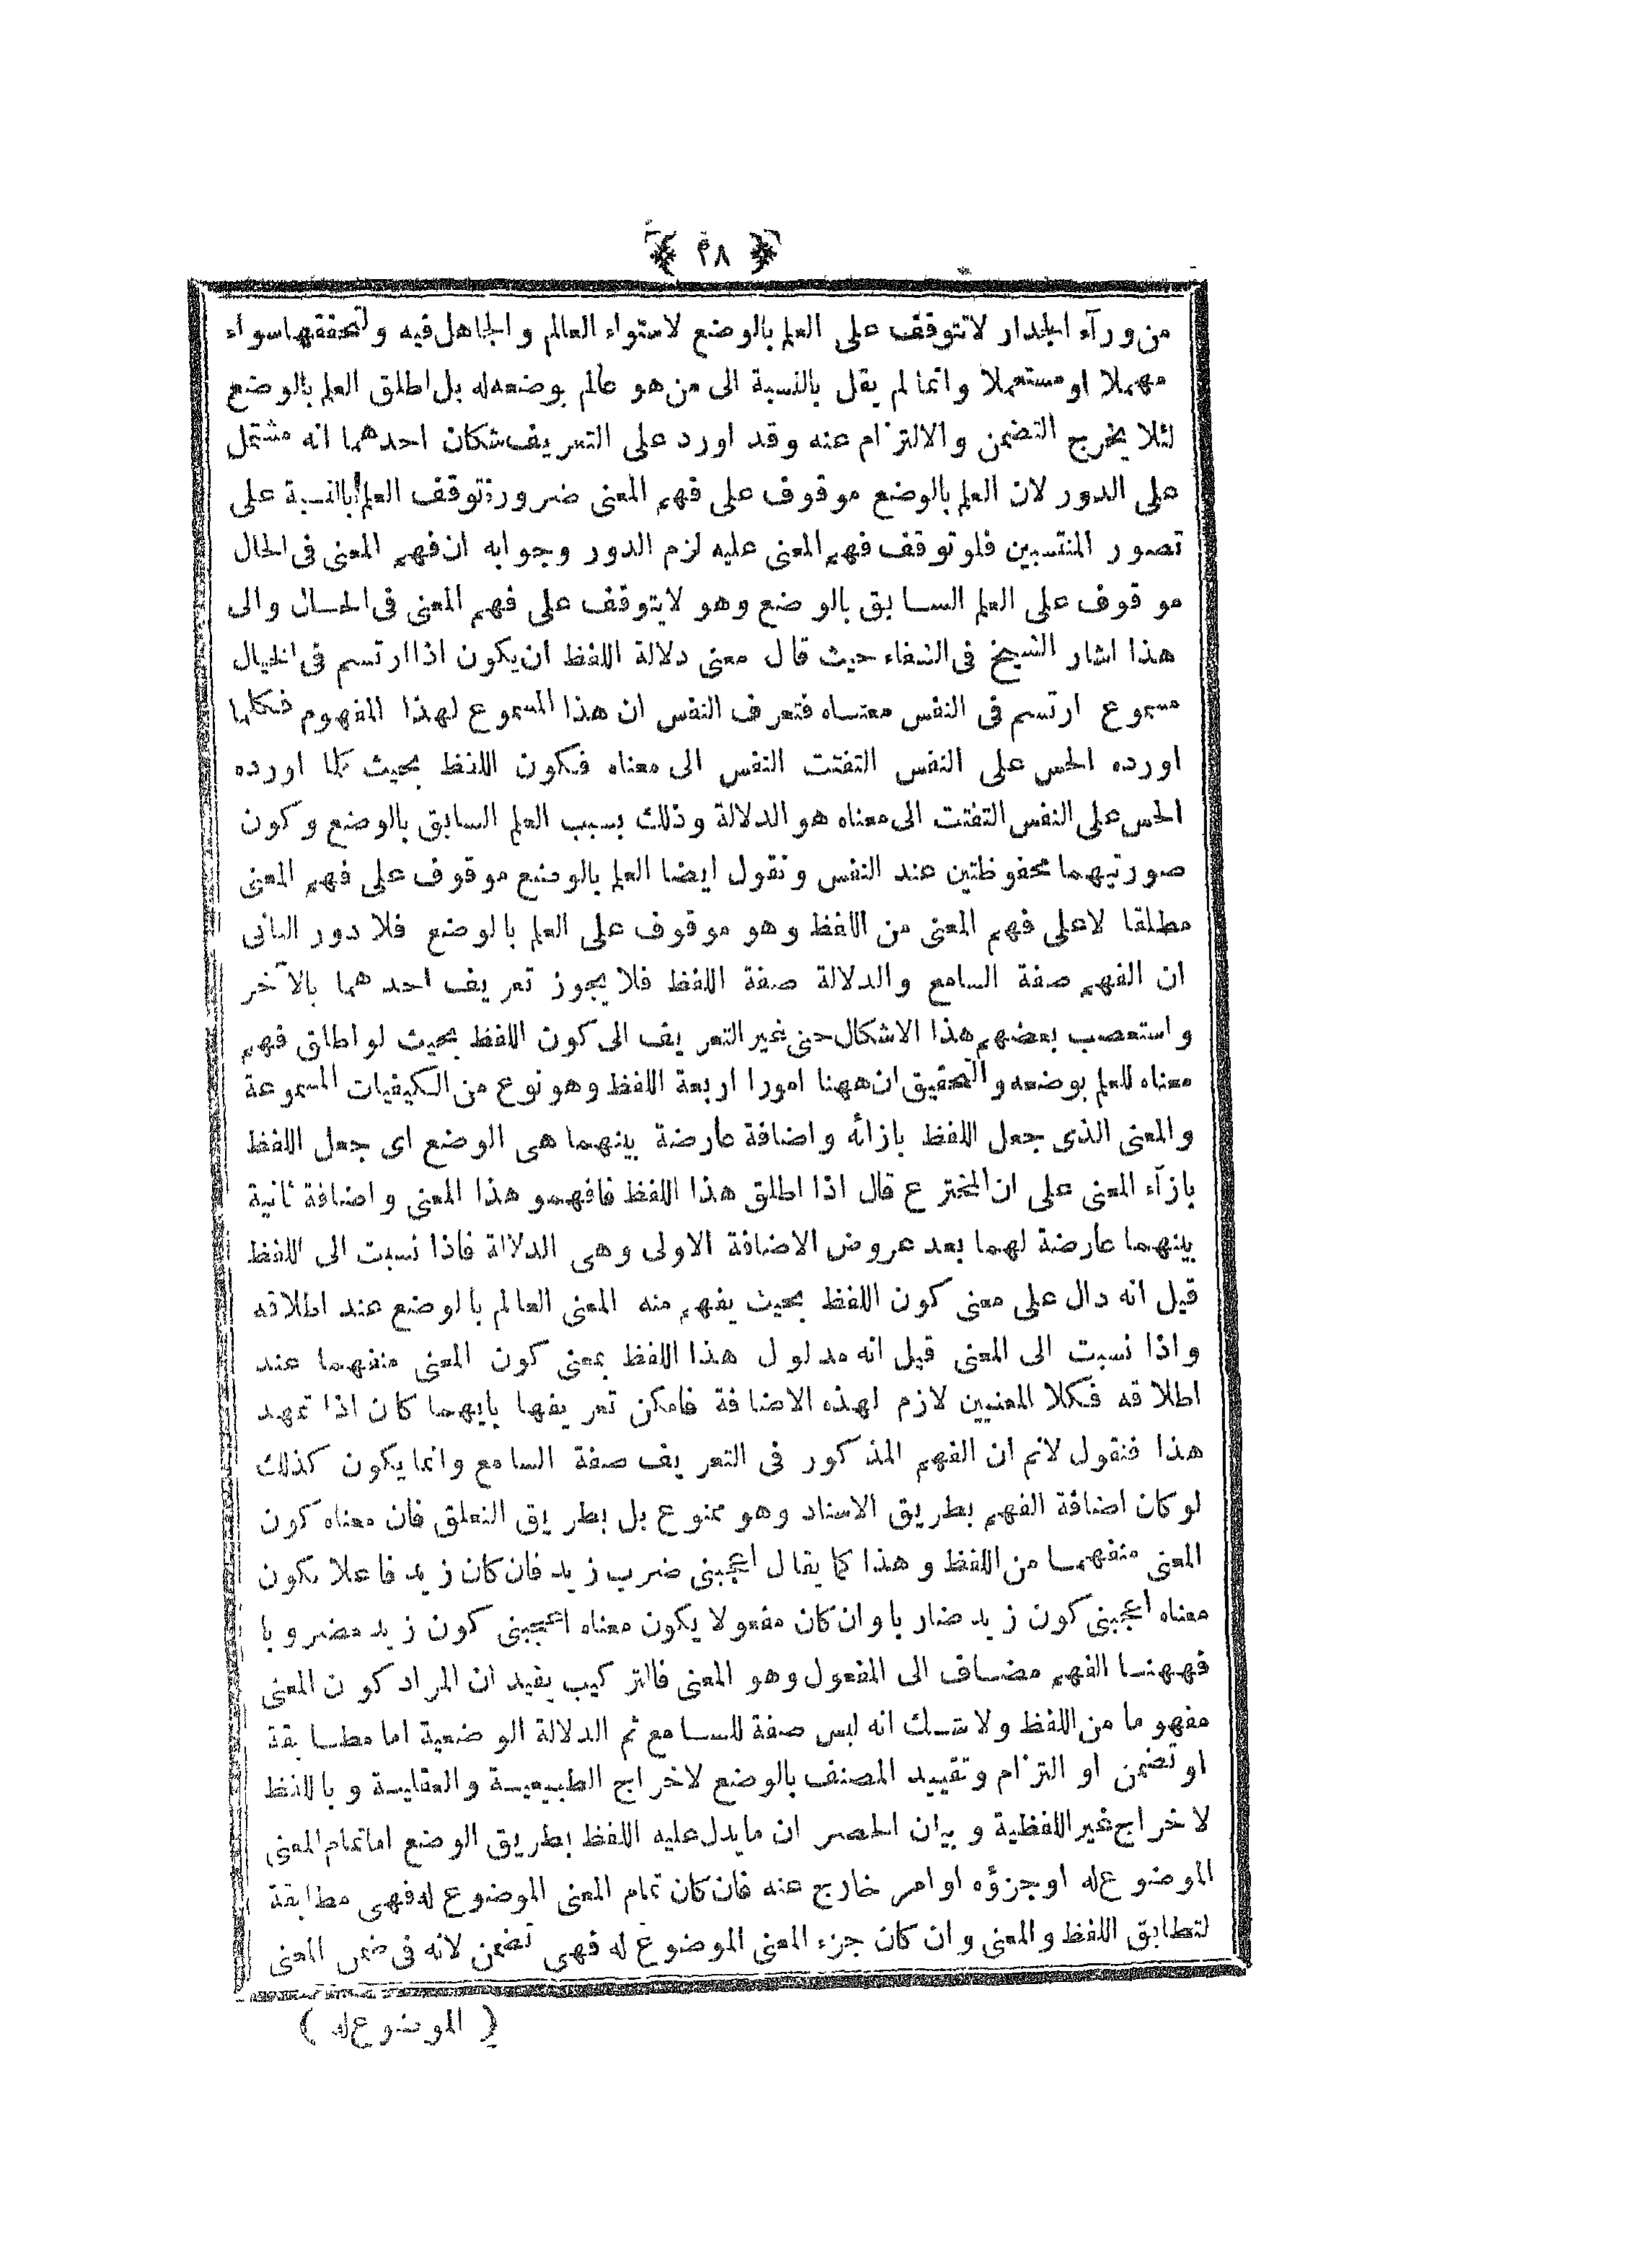 ﴿ ٢٨ ﴾
من ورآء الجدار لا تتوقف على العلم بالوضع لاستواء العالم والجاهل فيه ولتحققها سواء
مهملا او مستعملا وانما لم يقل بالنسبة الى من هو عالم بوضعه له بل اطلق العلم بالوضع
لئلا يخرج التضمن والالتزام عنه وقد اورد على التعريف شكان احدهما انه مشتمل
على الدور لان العلم بالوضع موقوف على فهم المعنى ضرورة توقف العلم بالنسبة على
تصور المنتسبين فلو توقف فهم المعنى عليه لزم الدور وجوابه ان فهم المعنى فى الحال
موقوف على العلم السابق بالوضع وهو لا يتوقف على فهم المعنى فى الحال والى
هذا اشار الشيخ فى الشفاء حيث قال معنى دلالة اللفظ ان يكون اذا ارتسم فى الخيال
مسموع ارتسم فى النفس معناه فتعرف النفس ان هذا المسموع لهذا المفهوم فكلما
اورده الحس على النفس التفتت النفس الى معناه فكون اللفظ بحيث كلما اورده
الحس على النفس التفتت الى معناه هو الدلالة وذلك بسبب العلم السابق بالوضع وكون
صورتيهما محفوظتين عند النفس ونقول ايضا العلم بالوضع موقوف على فهم المعنى
مطلقا لا على فهم المعنى من اللفظ وهو موقوف على العلم بالوضع فلا دور الثانى
ان الفهم صفة السامع والدلالة صفة اللفظ فلا يجوز تعريف احدهما بالآخر
واستصعب بعضهم هذا الاشكال حتى غير التعريف الى كون اللفظ بحيث لو اطلق فهم
معناه للعلم بوضعه والتحقيق ان ههنا امورا اربعة اللفظ وهو نوع من الكيفيات المسموعة
والمعنى الذى جعل اللفظ بازائه واضافة عارضة بينهما هى الوضع اى جعل اللفظ
بازآء المعنى على ان المخترع قال اذا اطلق هذا اللفظ فافهمو هذا المعنى واضافة ثانية
بينهما عارضة لهما بعد عروض الاضافة الاولى وهى الدلالة فاذا نسبت الى اللفظ
قيل انه دال على معنى كون اللفظ بحيث يفهم منه المعنى العالم بالوضع عند اطلاقه
واذا نسبت الى المعنى قيل انه مدلول هذا اللفظ بمعنى كون المعنى منفهما عند
اطلاقه فكلا المعنيين لازم لهذه الاضافة فامكن تعريفها بايهما كان اذا تمهد
هذا فنقول لانم ان الفهم المذكور فى التعريف صفة السامع وانما يكون كذلك
لو كان اضافة الفهم بطريق الاسناد وهو ممنوع بل بطريق التعلق فان معناه كون
المعنى منفهما من اللفظ وهذا كما يقال اعجبنى ضرب زيد فان كان زيد فاعلا يكون
معناه اعجبنى كون زيد ضاربا وان كان مفعولا يكون معناه اعجبنى كون زيد مضروبا
فههنا الفهم مضاف الى المفعول وهو المعنى فالتركيب يفيد ان المراد كون المعنى
مفهوما من اللفظ ولا شك انه ليس صفة للسامع ثم الدلالة الوضعية اما مطابقة
او تضمن او التزام وتقييد المصنف بالوضع لاخراج الطبيعية والعقلية وباللفظ
لاخراج غير اللفظية وبيان الحصر ان ما يدل عليه اللفظ بطريق الوضع اما تمام المعنى
الموضوع له او جزؤه او امر خارج عنه فان كان تمام المعنى الموضوع له فهى مطابقة
لتطابق اللفظ والمعنى وان كان جزء المعنى الموضوع له فهى تضمن لانه فى ضمن المعنى
( الموضوع له )